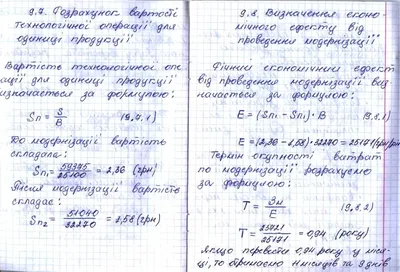 9.7. Розрахунок вартості
технологічної операції для
одиниці продукції
Вартість технологічної опе-
рації для одиниці продукції
визначається за формулою:
Sп = S/B (9.7.1)
До модернізації вартість
складала:
Sп₁ = 59345/25100 = 2,36 (грн)
Після модернізації вартість
складає:
Sп₂ = 51040/32270 = 1,58 (грн)
9.8. Визначення еконо-
мічного ефекту від
проведення модернізації
Річний економічний ефект
від проведення модернізації виз-
начається за формулою:
E = (Sп₁ - Sп₁) · B (9.8.1)
E = (2,36 - 1,58) · 32270 = 25171 (грн/рік)
Термін окупності витрат
по модернізації розрахуємо
за формулою:
T = Зм/E (9.8.2)
T = 23721/25171 = 0,94 (року)
Якщо перевести 0,94 року у міся-
ці, то отримаємо 11 місяців та 9 днів.